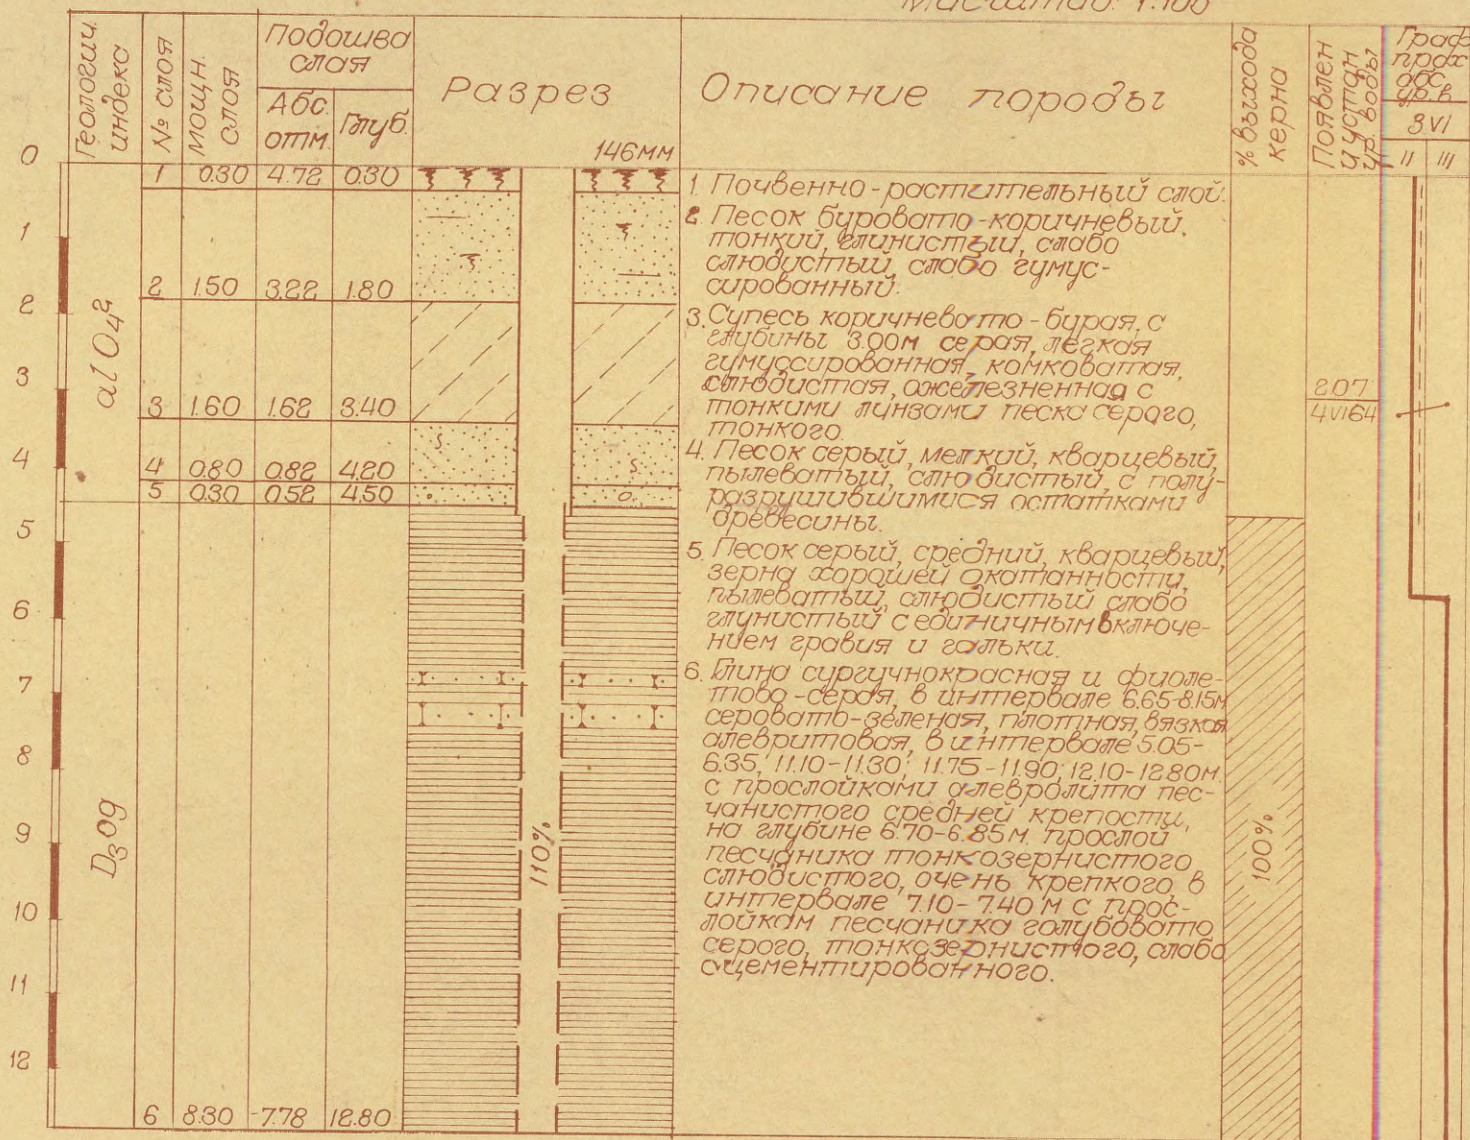 Масштаб: 1:100
Геологич. индекс
№ слоя
Мощн. слоя
Подошва слоя
Абс. отм.
Глуб.
Разрез
146мм
Описание породы
% выхода керна
Появлен и устан ур. воды
Граф
прох
абс.
ур. в.
3 VI
II III
0
1
2
3
4
5
6
7
8
9
10
11
12
al Q4²
D3og
1 0.30 4.72 0.30
2 1.50 3.22 1.80
3 1.60 1.62 3.40
4 0.80 0.82 4.20
5 0.30 0.52 4.50
6 8.30 -7.78 12.80
110%
1. Почвенно-растительный слой.
2. Песок буровато-коричневый,
тонкий, глинистый, слабо
слюдистый, слабо гумус-
сированный.
3. Супесь коричневато-бурая, с
глубины 3.00м серая, легкая
гумуссированная, комковатая,
слюдистая, ожелезненная с
тонкими линзами песка серого,
тонкого.
4. Песок серый, мелкий, кварцевый,
пылеватый, слюдистый, с полу-
разрушившимися остатками
древесины.
5. Песок серый, средний, кварцевый,
зерна хорошей окатанности,
пылеватый, слюдистый слабо
глинистый с единичным включе-
нием гравия и гальки.
6. Глина сургучнокрасная и фиоле-
тово-серая, в интервале 6.65-8.15м
серовато-зеленая, плотная, вязкая
алевритовая, в интервале 5.05-
6.35; 11.10-11.30; 11.75-11.90; 12.10-12.80м.
с прослойками алевролита пес-
чанистого средней крепости,
на глубине 6.70-6.85м. прослой
песчаника тонкозернистого
слюдистого, очень крепкого в
интервале 7.10-7.40 м с прос-
лойкам песчаника голубовато
серого, тонкозернистого, слабо
сцементированного.
100%
2.07
4 VI 64